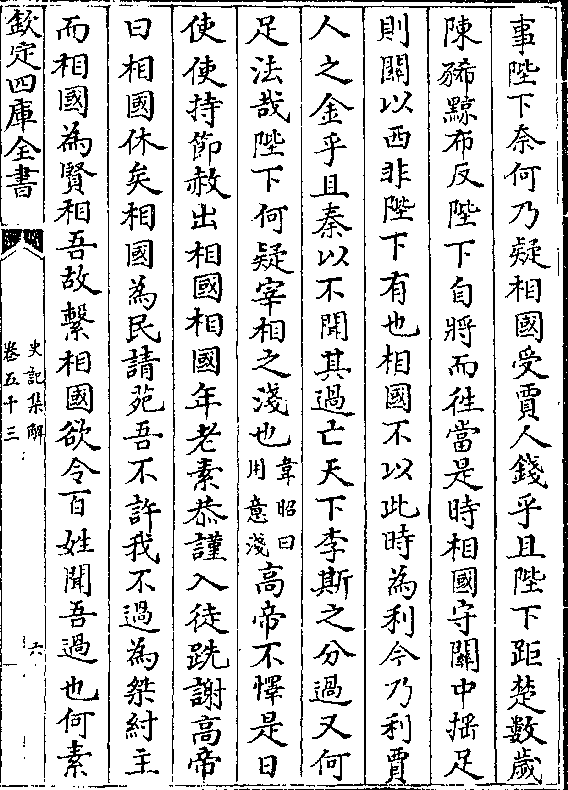 事陛下奈何乃疑相國受賈人錢乎且陛下距楚數歲
陳豨黥布反陛下自將而徃當是時相國守關中揺足
則關以西非陛下有也相國不以此時為利今乃利賈
人之金乎且秦以不聞其過亡天下李斯之分過又何
足法哉陛下何疑宰相之淺也韋昭曰用意淺高帝不懌是日
使使持節赦出相國相國年老素恭謹入徒跣謝高帝
曰相國休矣相國為民請苑吾不許我不過為桀紂主
而相國為賢相吾故繫相國欲令百姓聞吾過也何素
欽定四庫全書
史記集解
卷五十三
六